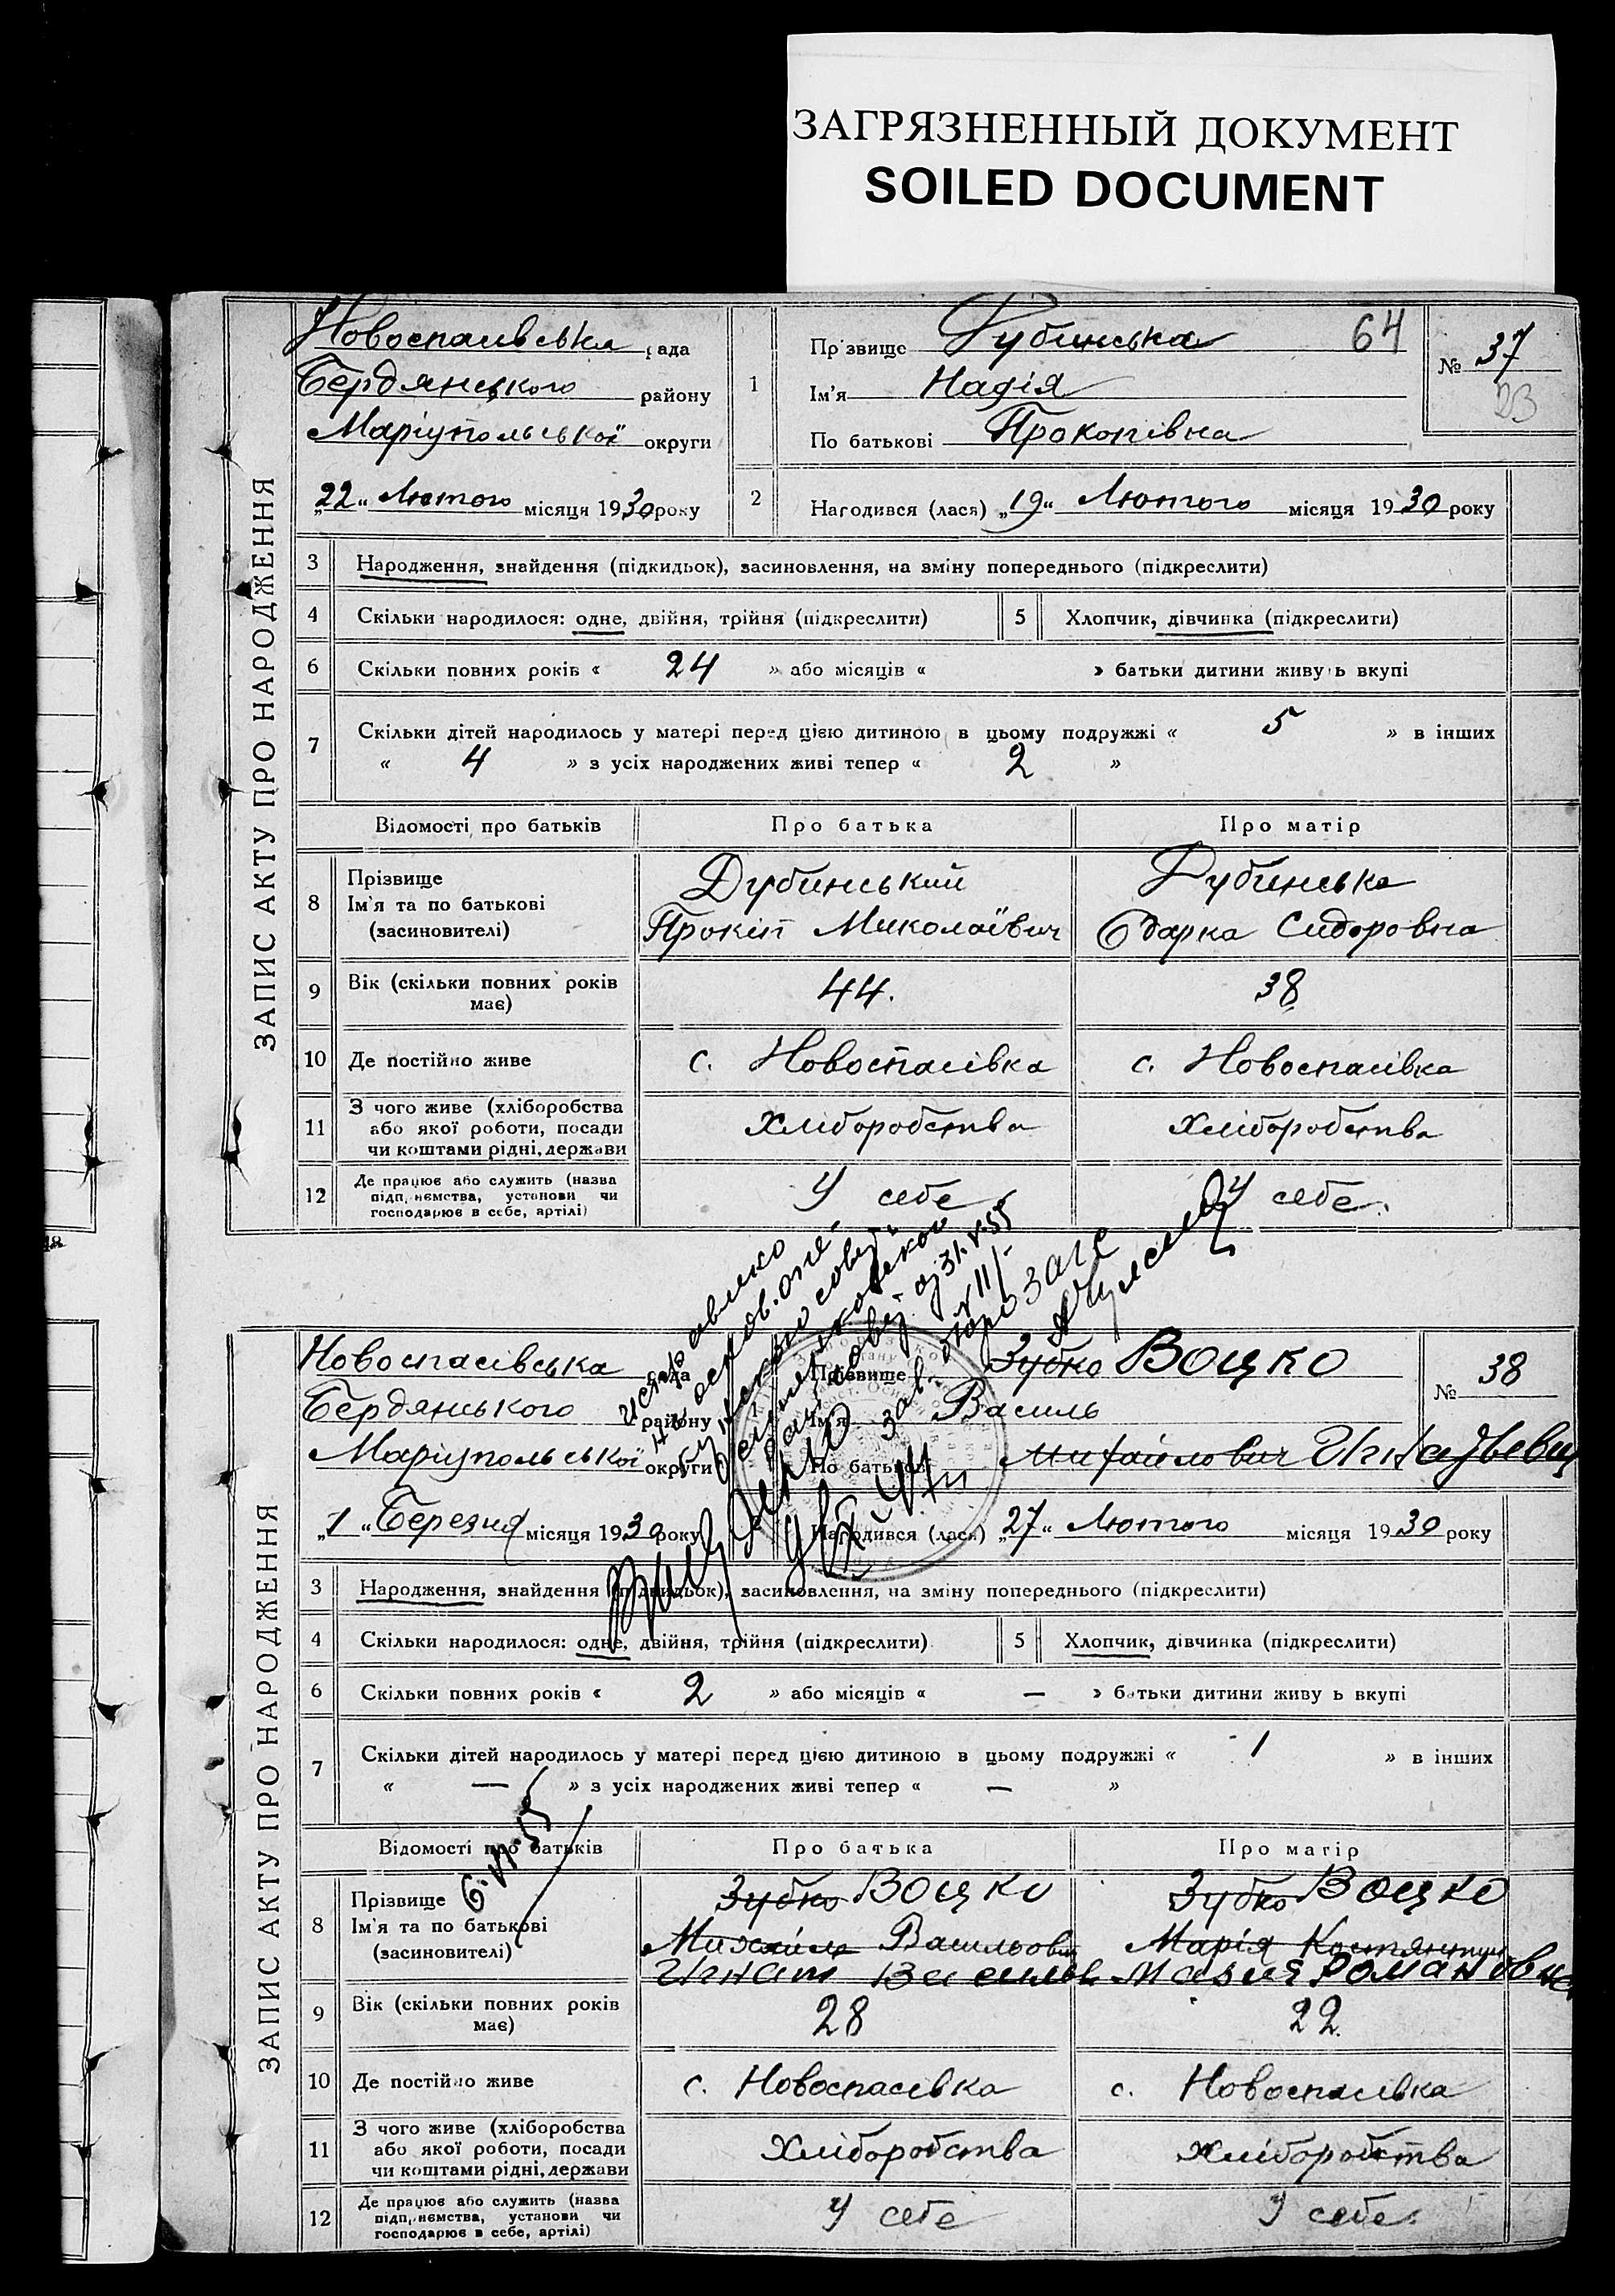 ЗАГРЯЗНЕННЫЙ ДОКУМЕНТ
SOILED DOCUMENT
ЗАПИС АКТУ ПРО НАРОДЖЕННЯ
Новоспасівська рада
Бердянського району
Маріупольської округи
„22“ Лютого місяця 1930 року
1
Прізвище Дубинська 64
Ім'я Надія
По батькові Прокопівна
№ 37
2 Народився (лася) „19“ Лютого місяця 1930 року
3 Народження, знайдення (підкидьок), засиновлення, на зміну попереднього (підкреслити)
4 Скільки народилося: одне, двійня, трійня (підкреслити) 5 Хлопчик, дівчинка (підкреслити)
6 Скільки повних років « 24 » або місяців « » батьки дитини живуть вкупі
7 Скільки дітей народилось у матері перед цією дитиною в цьому подружжі « 5 » в інших
« 4 » з усіх народжених живі тепер « 2 »
Відомості про батьків Про батька Про матір
8 Прізвище Ім'я та по батькові (засиновителі)
Дубинський Дубинська
Прокіп Миколаївич Одарка Сидоровна
9 Вік (скільки повних років має) 44. 38
10 Де постійно живе с. Новоспасівка с. Новоспасівка
11 З чого живе (хліборобства або якої роботи, посади чи коштами рідні, держави Хліборобства Хліборобства
12 Де працює або служить (назва підприємства, установи чи господарює в себе, артілі) У себе У себе.
ЗАПИС АКТУ ПРО НАРОДЖЕННЯ
Новоспасівська рада
Бердянського району
Маріупольської округи
„1“ Березня місяця 1930 року
Прізвище Зубко Воцко
Ім'я Василь
По батькові Михайлович Игнатьевич
№ 38
Народився (лася) „27“ Лютого місяця 1930 року
3 Народження, знайдення (підкидьок), засиновлення, на зміну попереднього (підкреслити)
4 Скільки народилося: одне, двійня, трійня (підкреслити) 5 Хлопчик, дівчинка (підкреслити)
6 Скільки повних років « 2 » або місяців « — » батьки дитини живу ь вкупі
7 Скільки дітей народилось у матері перед цією дитиною в цьому подружжі « 1 » в інших
« — » з усіх народжених живі тепер « — »
Відомості про батьків Про батька Про матір
6.VI.55
8 Прізвище Ім'я та по батькові (засиновителі)
Зубко Воцко Зубко Воцко
Михайло Васильович Марія Костянтин
Игнат Василь Мария Романовна
9 Вік (скільки повних років має) 28 22
10 Де постійно живе с. Новоспасівка с. Новоспасівка
11 З чого живе (хліборобства або якої роботи, посади чи коштами рідні, держави Хліборобства Хліборобства
12 Де працює або служить (назва підприємства, установи чи господарює в себе, артілі) У себе У себе.